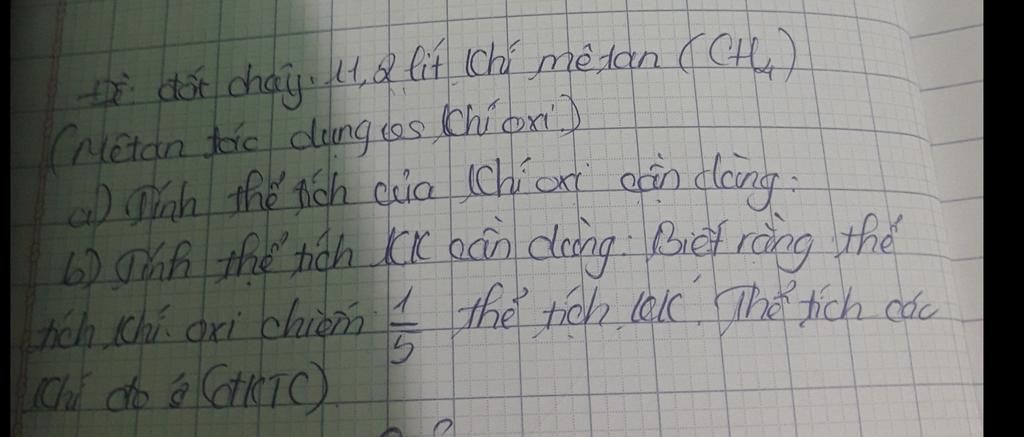 Để đốt cháy 11,2 lít khí mêtan (CH4)
(Mêtan tác dụng cos khí oxi)
a) Tính thể tích của khí oxi cần dùng:
b) Tính thể tích KK cần dùng. Biết rằng thể
tích khí oxi chiếm 1/5 thể tích KK. Thể tích các
khí đo ở (ĐKTC)